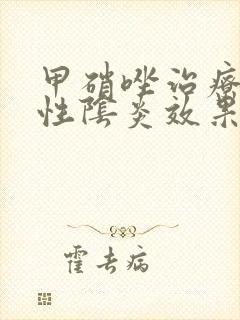 甲硝唑治疗
性陰炎效果
霍去病